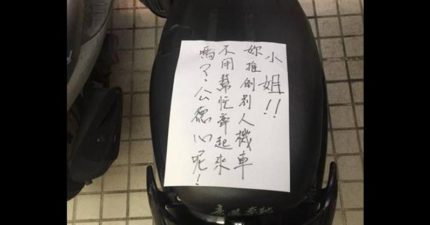 小姐!!
妳推倒別人機車
不用幫忙牽起來
嗎?公德心呢!